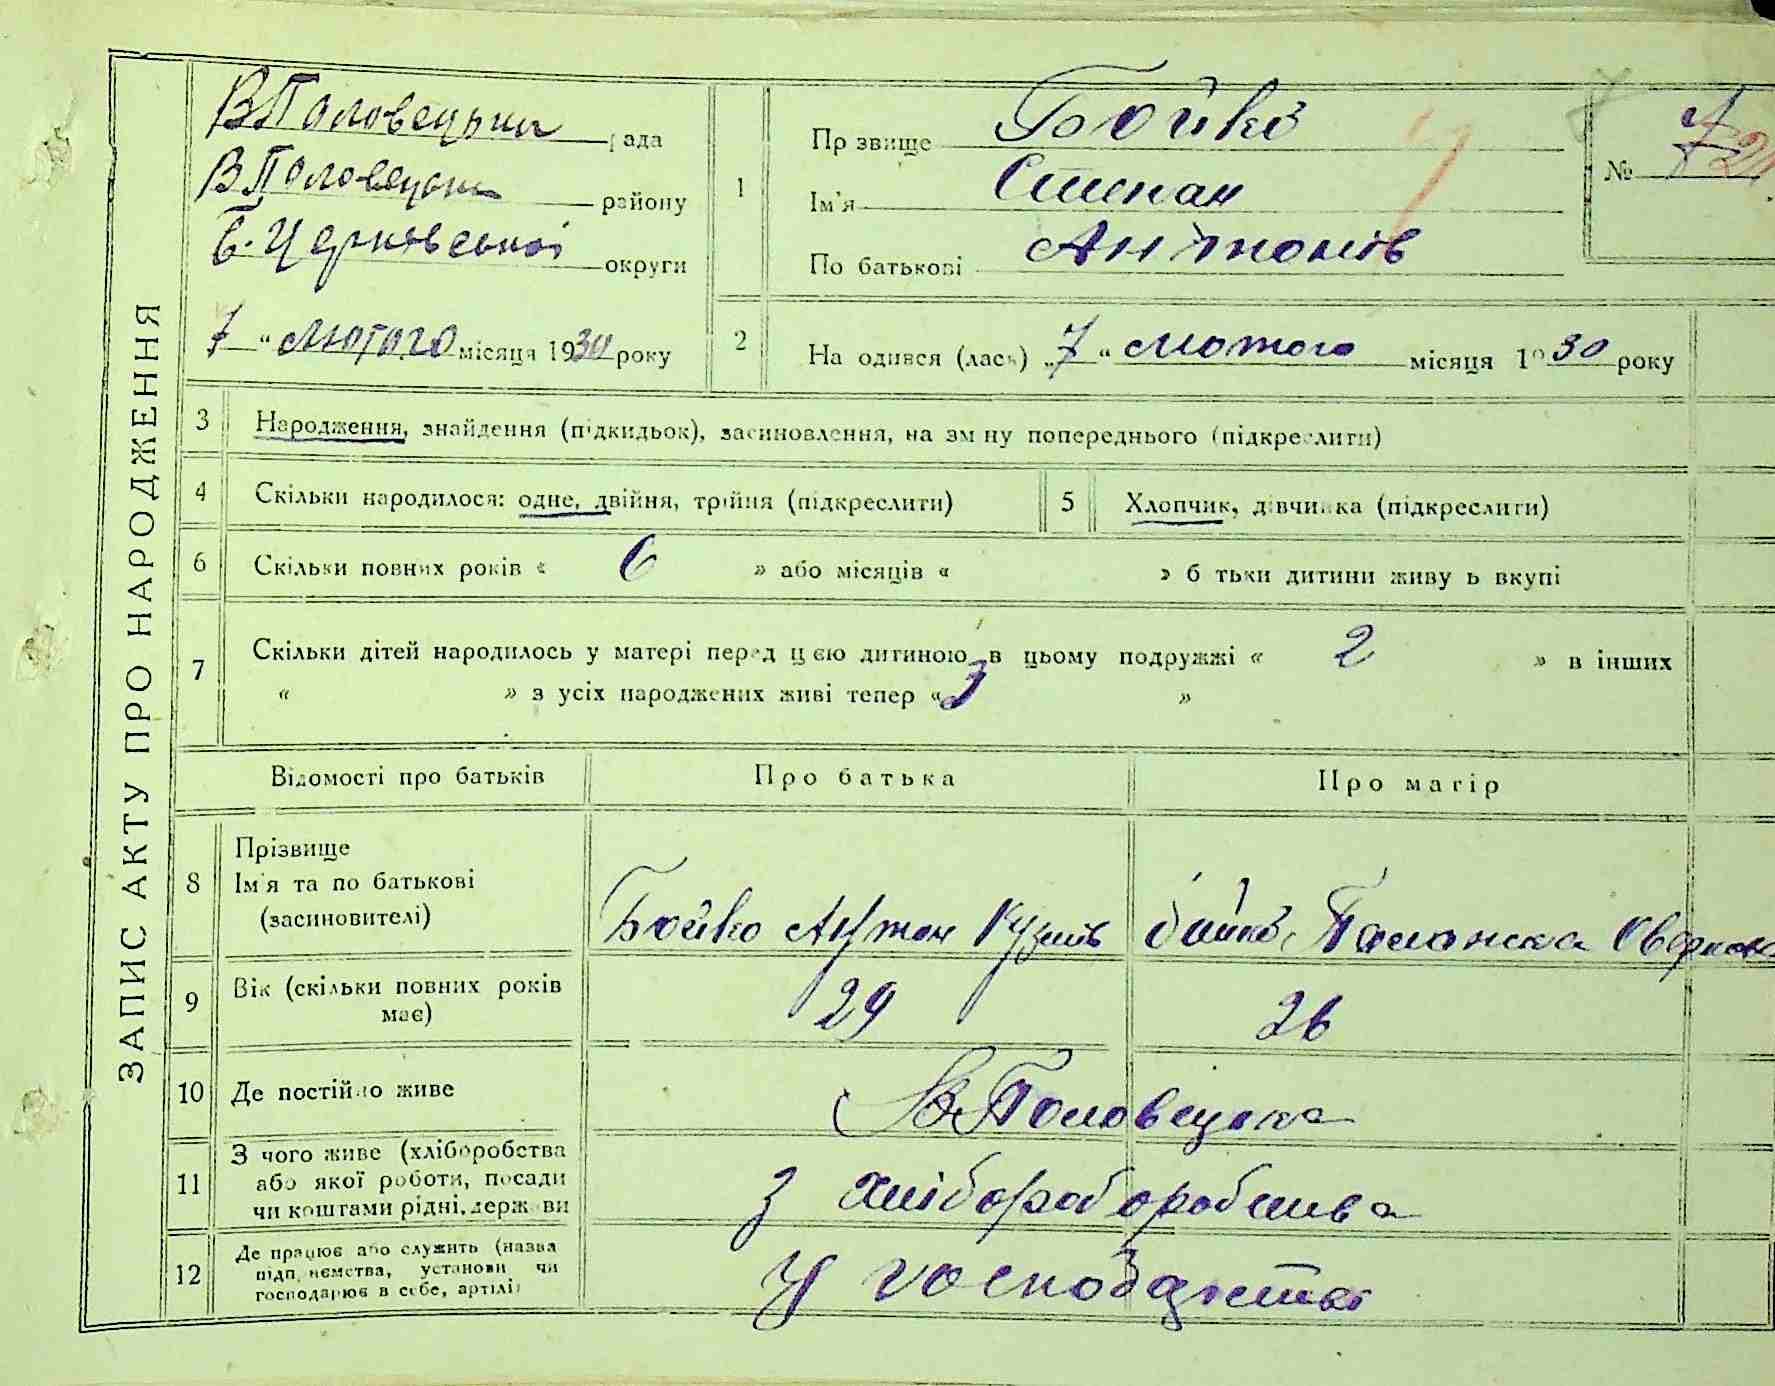 ЗАПИС АКТУ ПРО НАРОДЖЕННЯ
В Половецька рада
В Половецьки району
Б. Церківської округи
7 " лютого місяця 1930 року
1 Пр звище Бойко
Ім'я Степан
По батькові Антонів
№ 21
2 На одився (лась) „7 " лютого місяця 1930 року
3 Народження, знайдення (підкидьок), засиновлення, на зм ну попереднього (підкреслити)
4 Скільки народилося: одне, двійня, трійня (підкреслити)
5 Хлопчик, дівчинка (підкреслити)
6 Скільки повних років « 6 » або місяців « » б тьки дитини живу ь вкупі
7 Скільки дітей народилось у матері перед цією дитиною в цьому подружжі « 2 » в інших
« » з усіх народжених живі тепер « 3 »
Відомості про батьків Про батька Про матір
8 Прізвище
Ім'я та по батькові
(засиновителі)
Бойко Антон Кузьмів
Бойко Палажка
9 Вік (скільки повних років має)
29
26
10 Де постійно живе
В. Половецька
11 З чого живе (хліборобства
або якої роботи, посади
чи коштами рідні, держави
З хлібороборобства
12 Де працює або служить (назва
підп иємства, установи чи
господарює в себе, артілі)
У господарстві